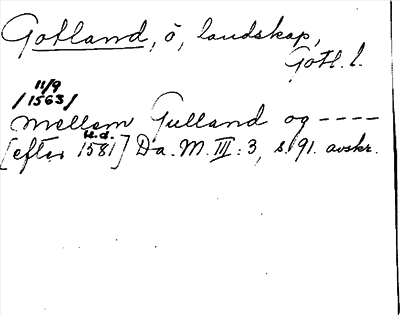 Gotland, ö, landskap,
Gotl. l.
11/9
/1563/
mellem Gulland og ----
u.d.
[efter 1581] Da. M. III: 3, s. 91. avskr.